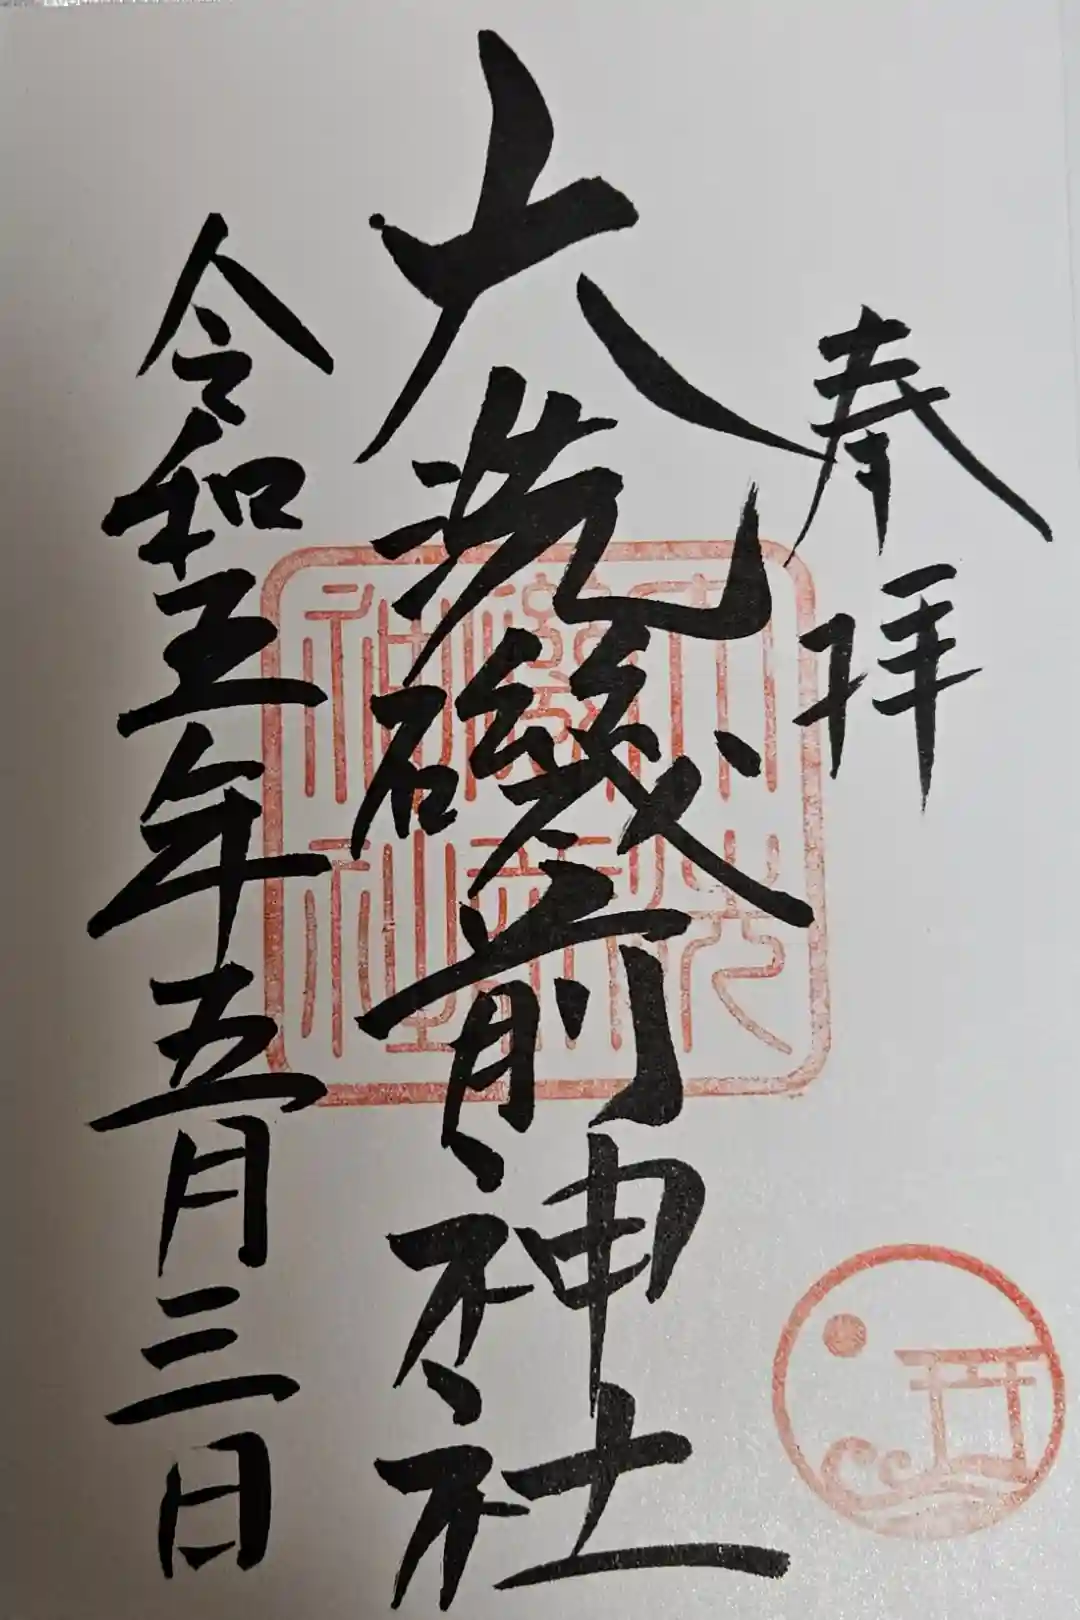 奉拝
大洗磯前神社
令和五年五月三日
大洗
磯前
神社